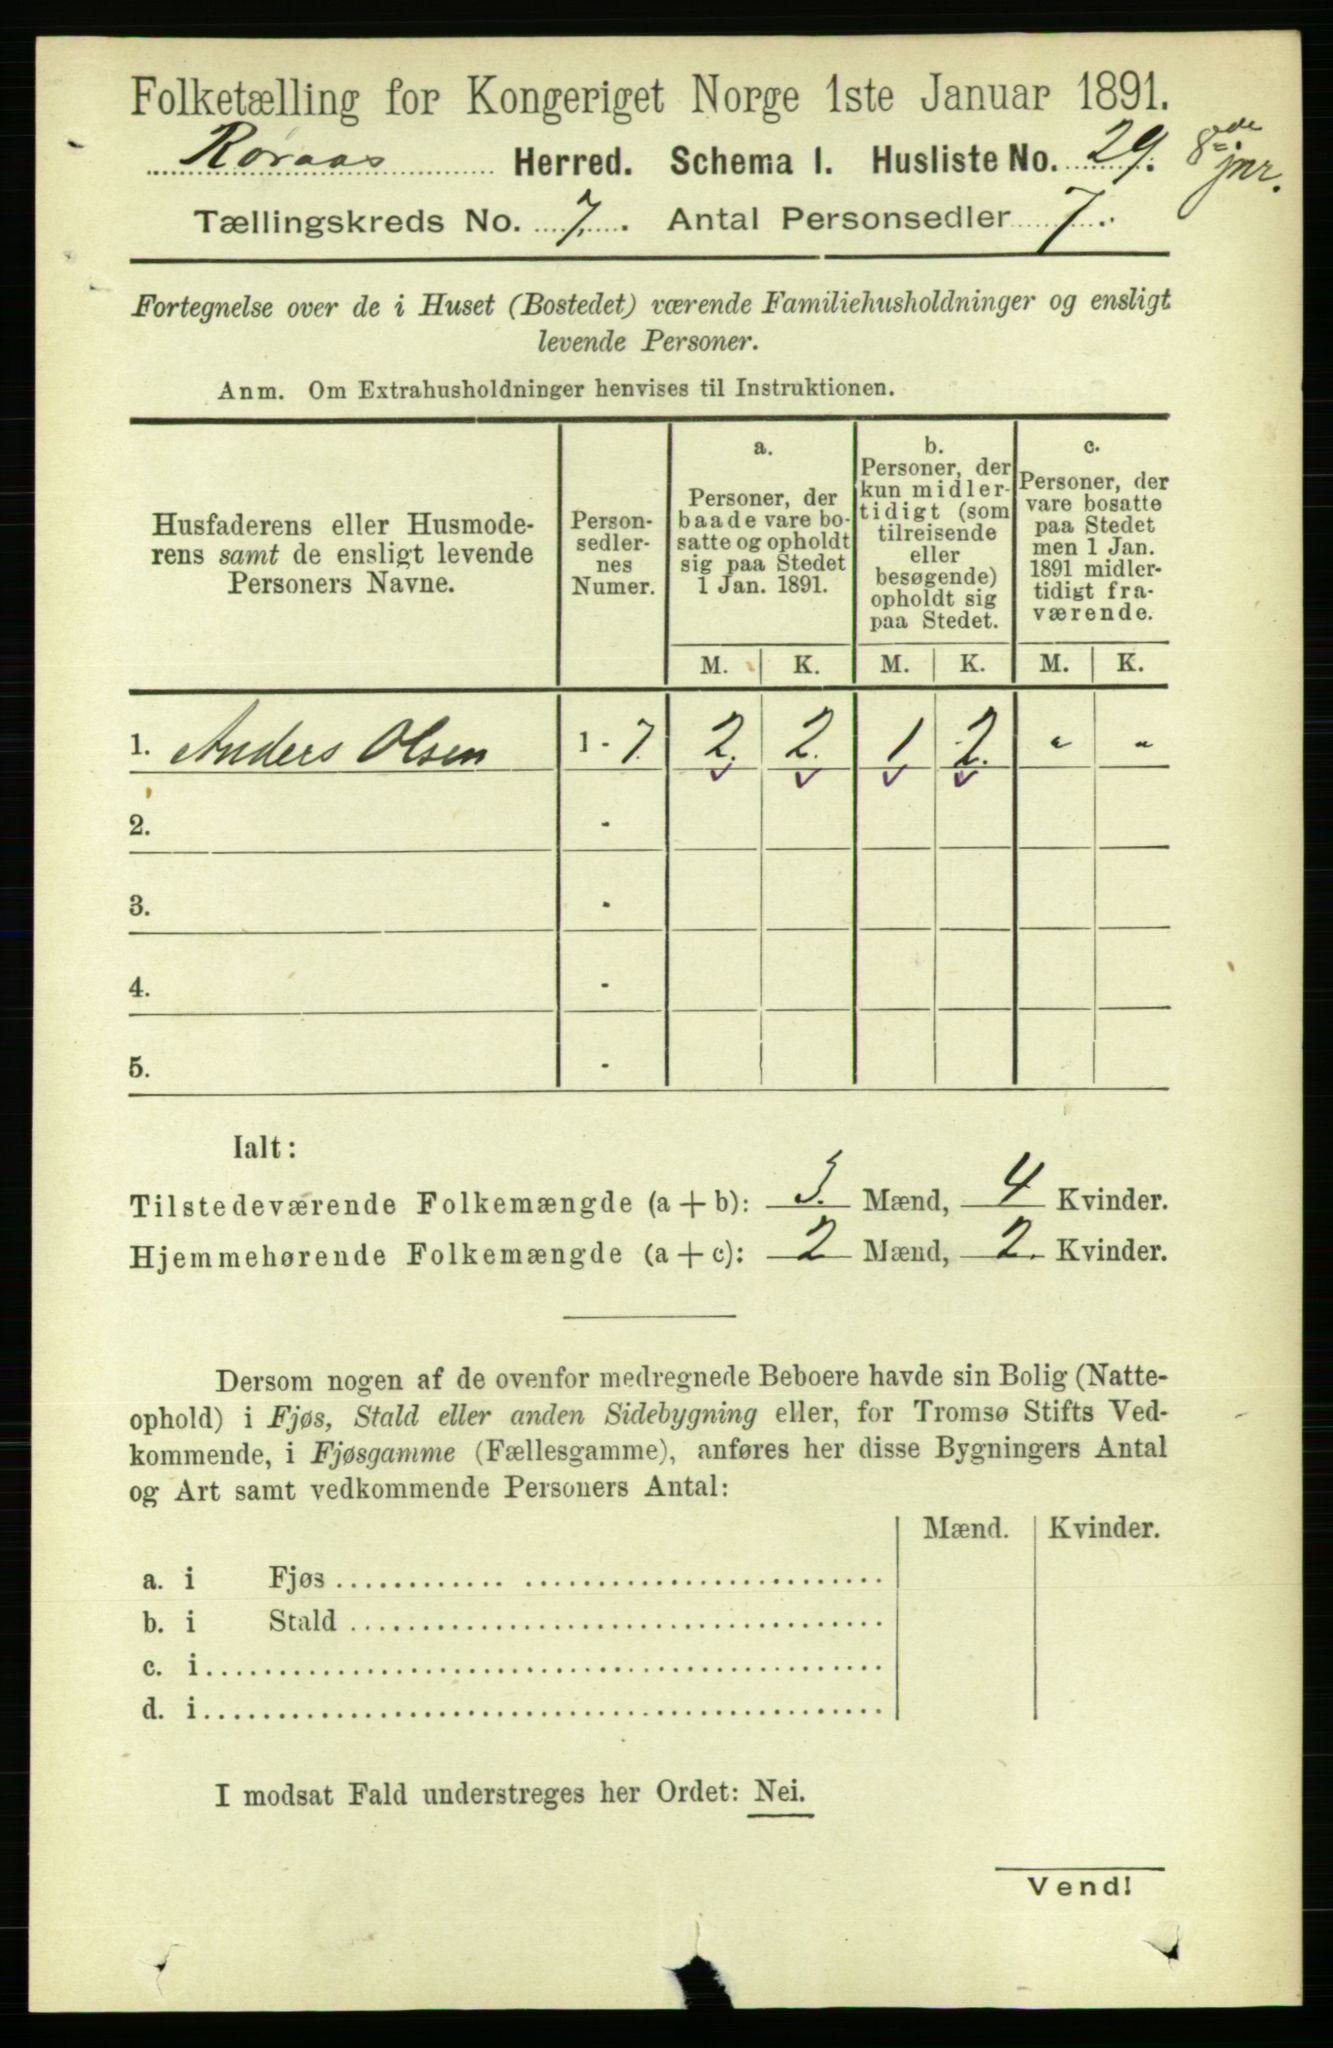 Folketælling for Kongeriget Norge 1ste Januar 1891.
Røraas Herred. Schema 1. Husliste No. 29. 8de jnr.
Tællingskreds No. 7. Antal Personsedler 7.
Fortegnelse over de i Huset (Bostedet) værende Familiehusholdninger og ensligt
levende Personer.
Anm. Om Extrahusholdninger henvises til Instruktionen.
Husfaderens eller Husmode-
rens samt de ensligt levende
Personers Navne.
Person-
sedler-
nes
Numer.
a.
Personer, der
baade vare bo-
satte og opholdt
sig paa Stedet
1 Jan. 1891.
b.
Personer, der
kun midler-
tidigt (som
tilreisende
eller
besøgende)
opholdt sig
paa Stedet.
c.
Personer, der
vare bosatte
paa Stedet
men 1 Jan.
1891 midler-
tidigt fra-
værende.
M. K. M. K. M. K.
1. Anders Olsen 1 - 7. 2. 2. 1 2. " "
2. -
3. -
4. -
5. -
Ialt:
Tilstedeværende Folkemængde (a + b): 3. Mænd, 4 Kvinder.
Hjemmehørende Folkemængde (a + c): 2 Mænd, 2. Kvinder.
Dersom nogen af de ovenfor medregnede Beboere havde sin Bolig (Natte-
ophold) i Fjøs, Stald eller anden Sidebygning eller, for Tromsø Stifts Ved-
kommende, i Fjøsgamme (Fællesgamme), anføres her disse Bygningers Antal
og Art samt vedkommende Personers Antal:
Mænd. Kvinder.
a. i Fjøs
b. i Stald
c. i
d. i
I modsat Fald understreges her Ordet: Nei.
Vend!